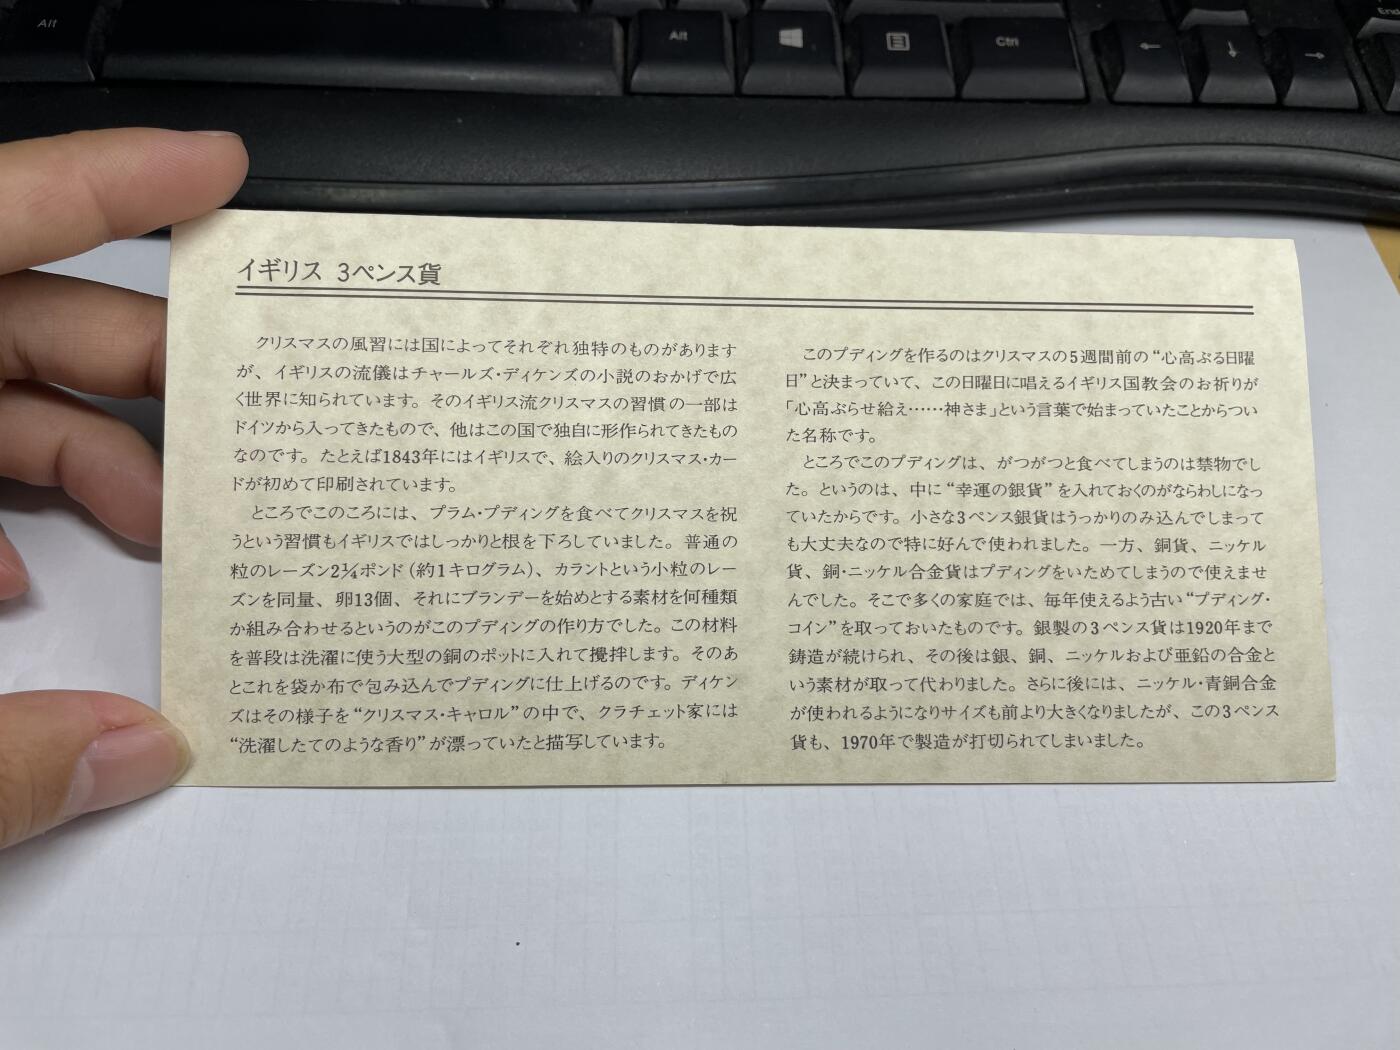 Alt
Alt
Ctrl
End
イギリス 3ペンス貨
クリスマスの風習には国によってそれぞれ独特のものがあります
が、イギリスの流儀はチャールズ・ディケンズの小説のおかげで広
く世界に知られています。そのイギリス流クリスマスの習慣の一部は
ドイツから入ってきたもので、他はこの国で独自に形作られてきたもの
なのです。たとえば1843年にはイギリスで、絵入りのクリスマス・カー
ドが初めて印刷されています。
ところでこのころには、プラム・プディングを食べてクリスマスを祝
うという習慣もイギリスではしっかりと根を下ろしていました。普通の
粒のレーズン2¼ポンド(約1キログラム)、カラントという小粒のレー
ズンを同量、卵13個、それにブランデーを始めとする素材を何種類
か組み合わせるというのがこのプディングの作り方でした。この材料
を普段は洗濯に使う大型の銅のポットに入れて攪拌します。そのあ
とこれを袋か布で包み込んでプディングに仕上げるのです。ディケン
ズはその様子を“クリスマス・キャロル”の中で、クラチェット家には
“洗濯したてのような香り”が漂っていたと描写しています。
このプディングを作るのはクリスマスの5週間前の“心高ぶる日曜
日”と決まっていて、この日曜日に唱えるイギリス国教会のお祈りが
「心高ぶらせ給え……神さま」という言葉で始まっていたことからつい
た名称です。
ところでこのプディングは、がつがつと食べてしまうのは禁物でし
た。というのは、中に“幸運の銀貨”を入れておくのがならわしになっ
ていたからです。小さな3ペンス銀貨はうっかりのみ込んでしまって
も大丈夫なので特に好んで使われました。一方、銅貨、ニッケル
貨、銅・ニッケル合金貨はプディングをいためてしまうので使えませ
んでした。そこで多くの家庭では、毎年使えるよう古い“プディング・
コイン”を取っておいたものです。銀製の3ペンス貨は1920年まで
鋳造が続けられ、その後は銀、銅、ニッケルおよび亜鉛の合金と
いう素材が取って代わりました。さらに後には、ニッケル・青銅合金
が使われるようになりサイズも前より大きくなりましたが、この3ペンス
貨も、1970年で製造が打切られてしまいました。